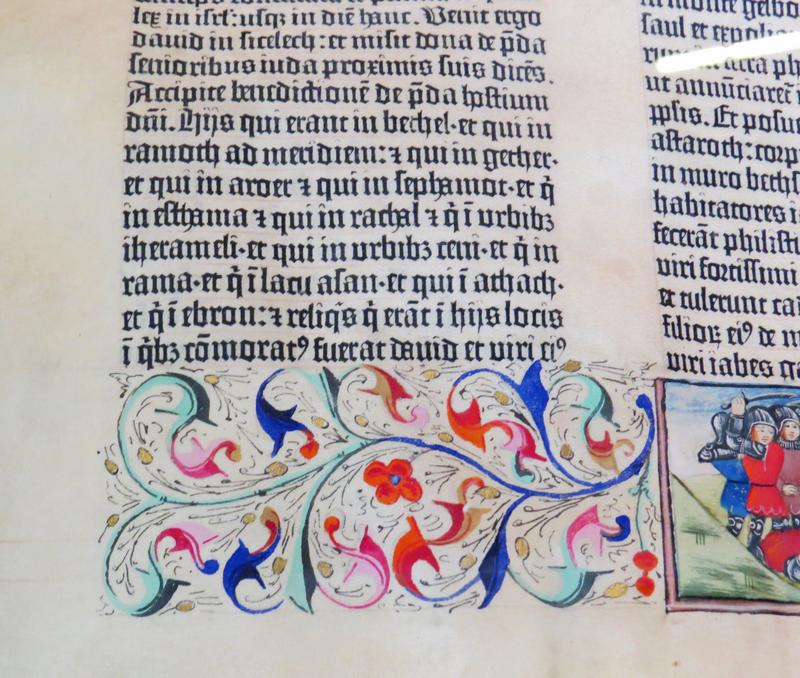 lex in isrl': usqz in diē hanc. Venit ergo
david in sicelech: et misit dona de p̄da
senioribus iuda proximis suis dicēs.
Accipite benedictionē de p̄da hostium
dn̄i. Hijs qui erant in bethel· et qui in
ramoth ad meridiem: ⁊ qui in gether·
et qui in aroer ⁊ qui in sephamot· et q̇
in esthama ⁊ qui in rachal ⁊ q̇ ī urbibꝫ
iherameli· et qui in urbibꝫ ceni· et q̇ in
rama· et q̇ ī lacu asan· et qui ī athach·
et q̇ ī ebron: ⁊ reliq̇s q̇ erāt ī hijs locis
ī q̇bꝫ cōmoratꝰ fuerat david et viri eiꝰ
in monte gelbo
saul et expolia
ut annūciaret
ipsis. Et posue
astaroth: corp
in muro beths
habitatores i
fecerāt philisti
viri fortissimi
et tulerunt ca
filioꝝ eiꝰ de m
viri iabes ga